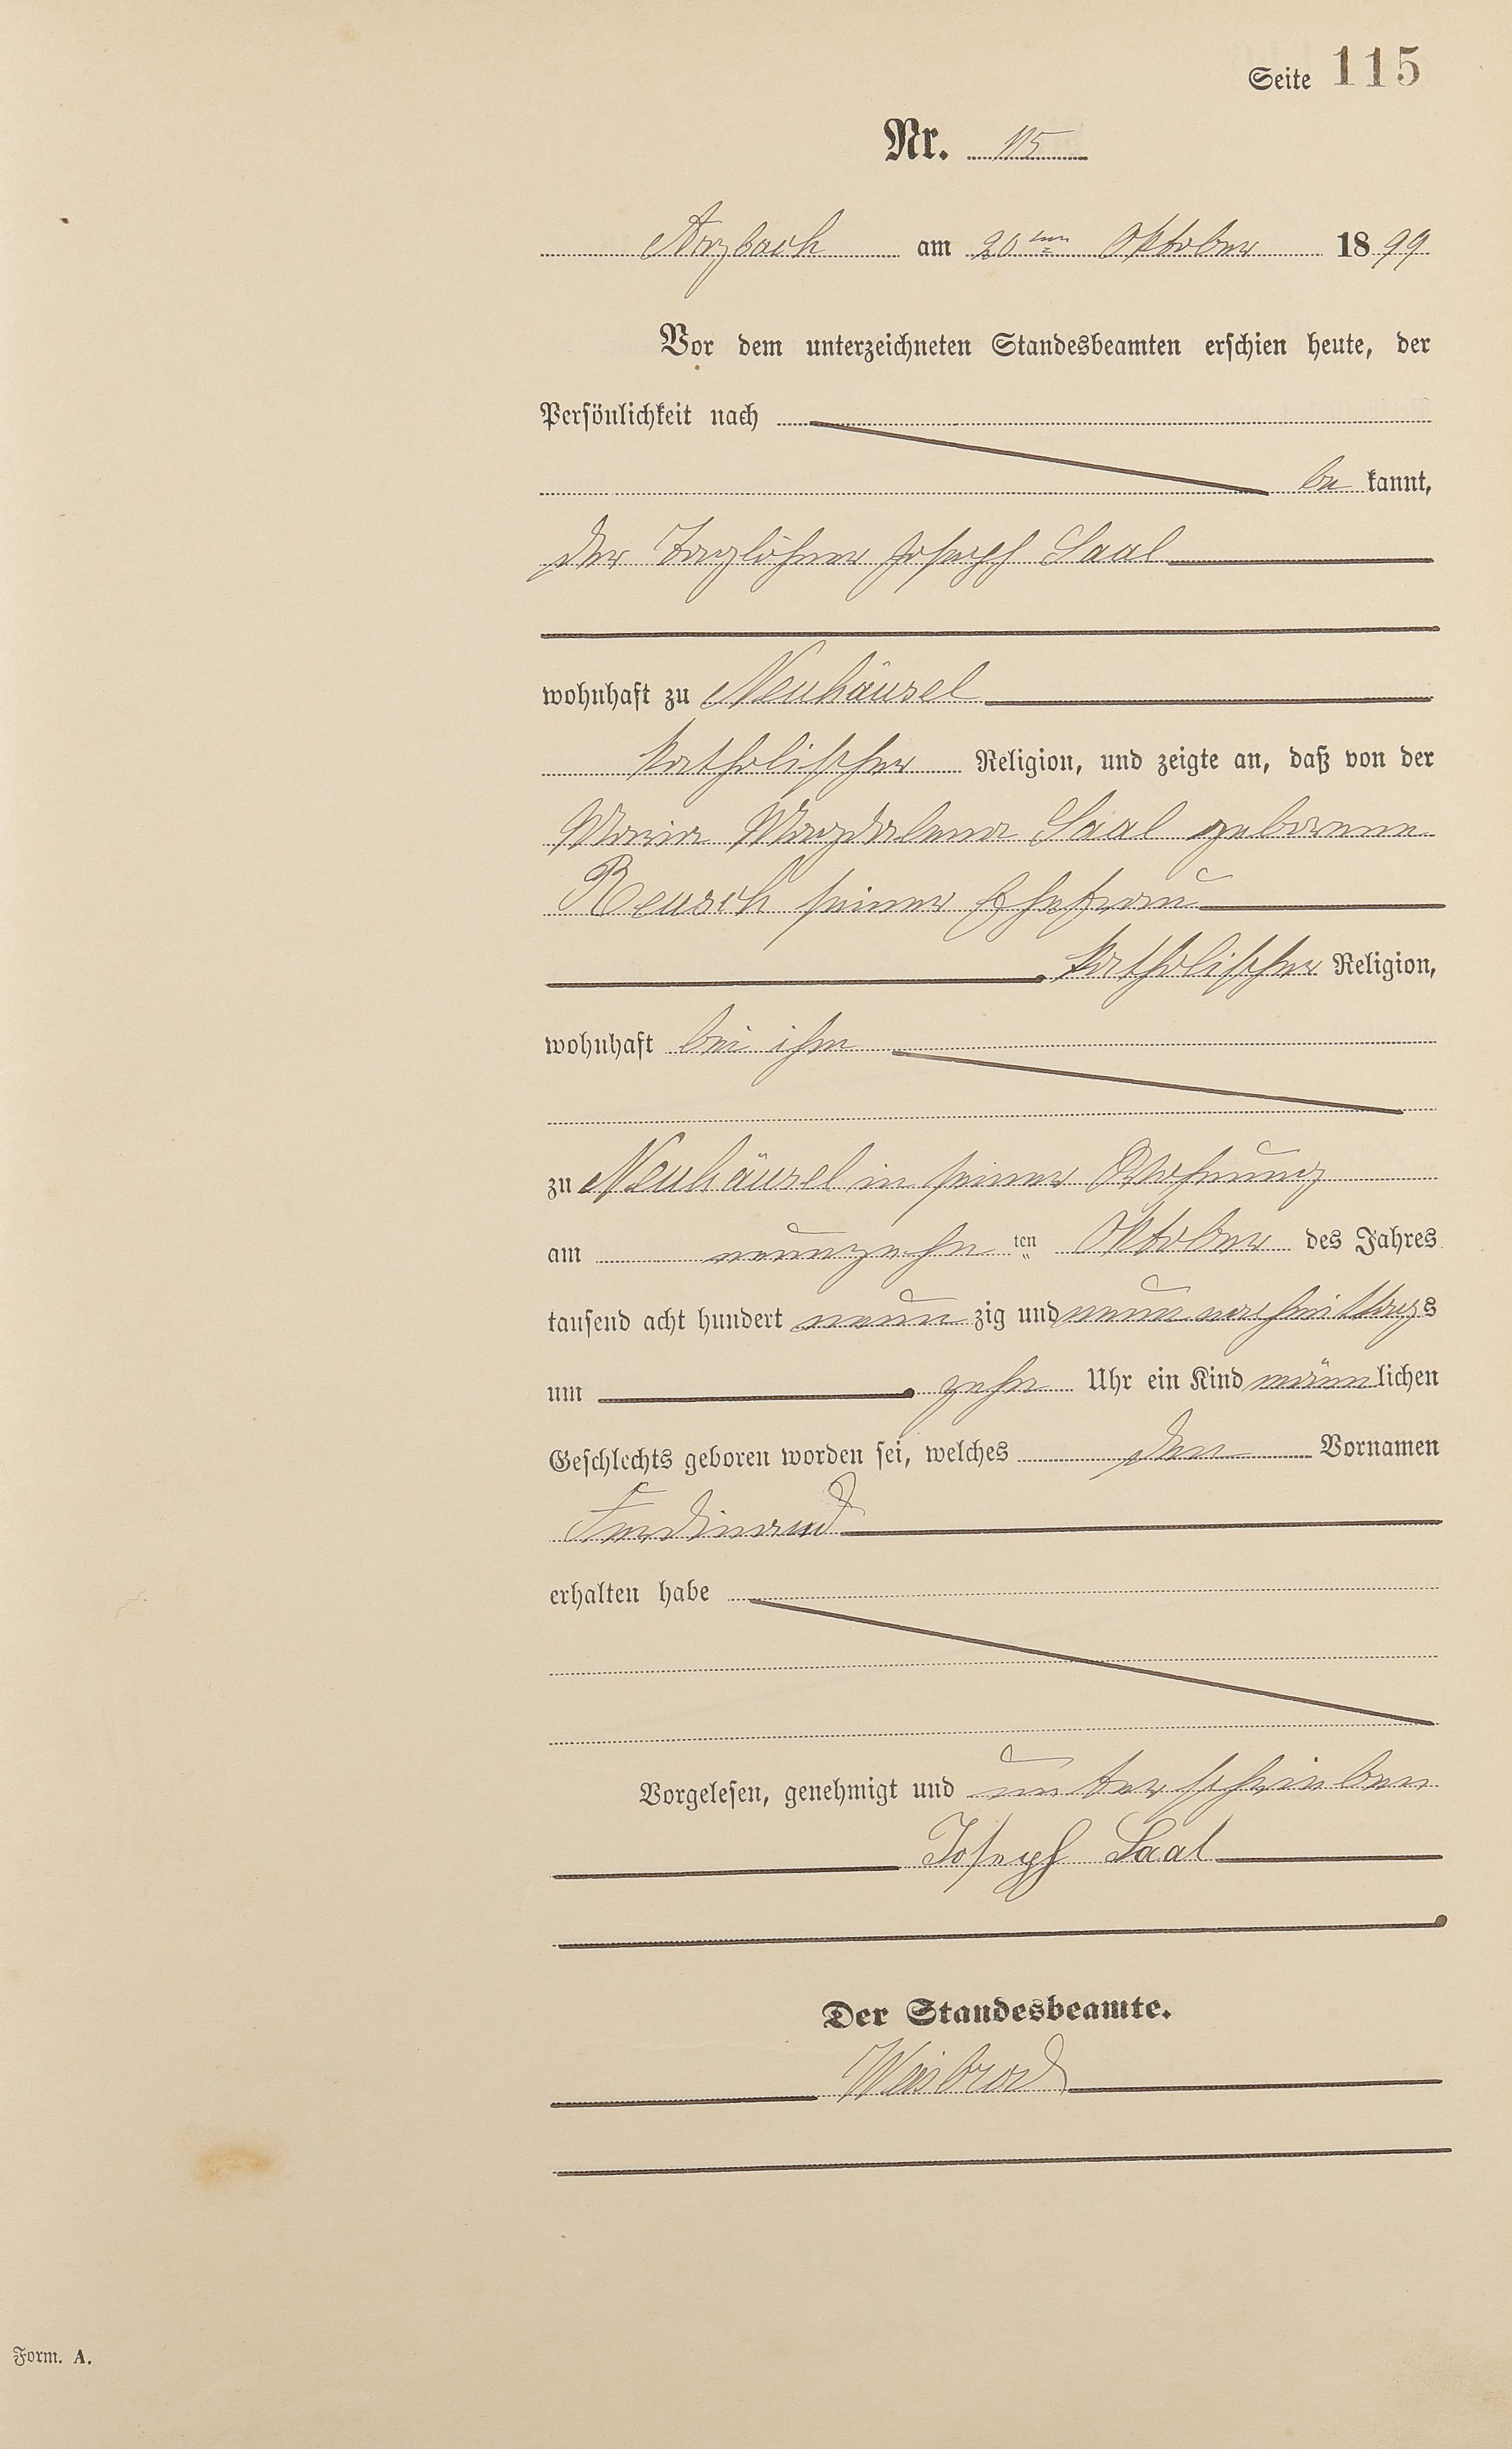 Seite 115
Nr. 115
Arzbach am 20ten Oktober 1899
Vor dem unterzeichneten Standesbeamten erschien heute, der
Persönlichkeit nach
be kannt,
der Taglöhner Joseph Saal
wohnhaft zu Neuhäusel
katholischer Religion, und zeigte an, daß von der
Maria Magdalena Saal geborene
Reusch seiner Ehefrau
katholischer Religion,
wohnhaft bei ihm
zu Neuhäusel in seiner Wohnung
am neunzehn ten Oktober des Jahres
tausend acht hundert neun zig und neun vormittags
um zehn Uhr ein Kind männlichen
Geschlechts geboren worden sei, welches den Vornamen
Ferdinand
erhalten habe
Vorgelesen, genehmigt und unterschrieben
Joseph Saal
Der Standesbeamte.
Weisbrod
Form. A.